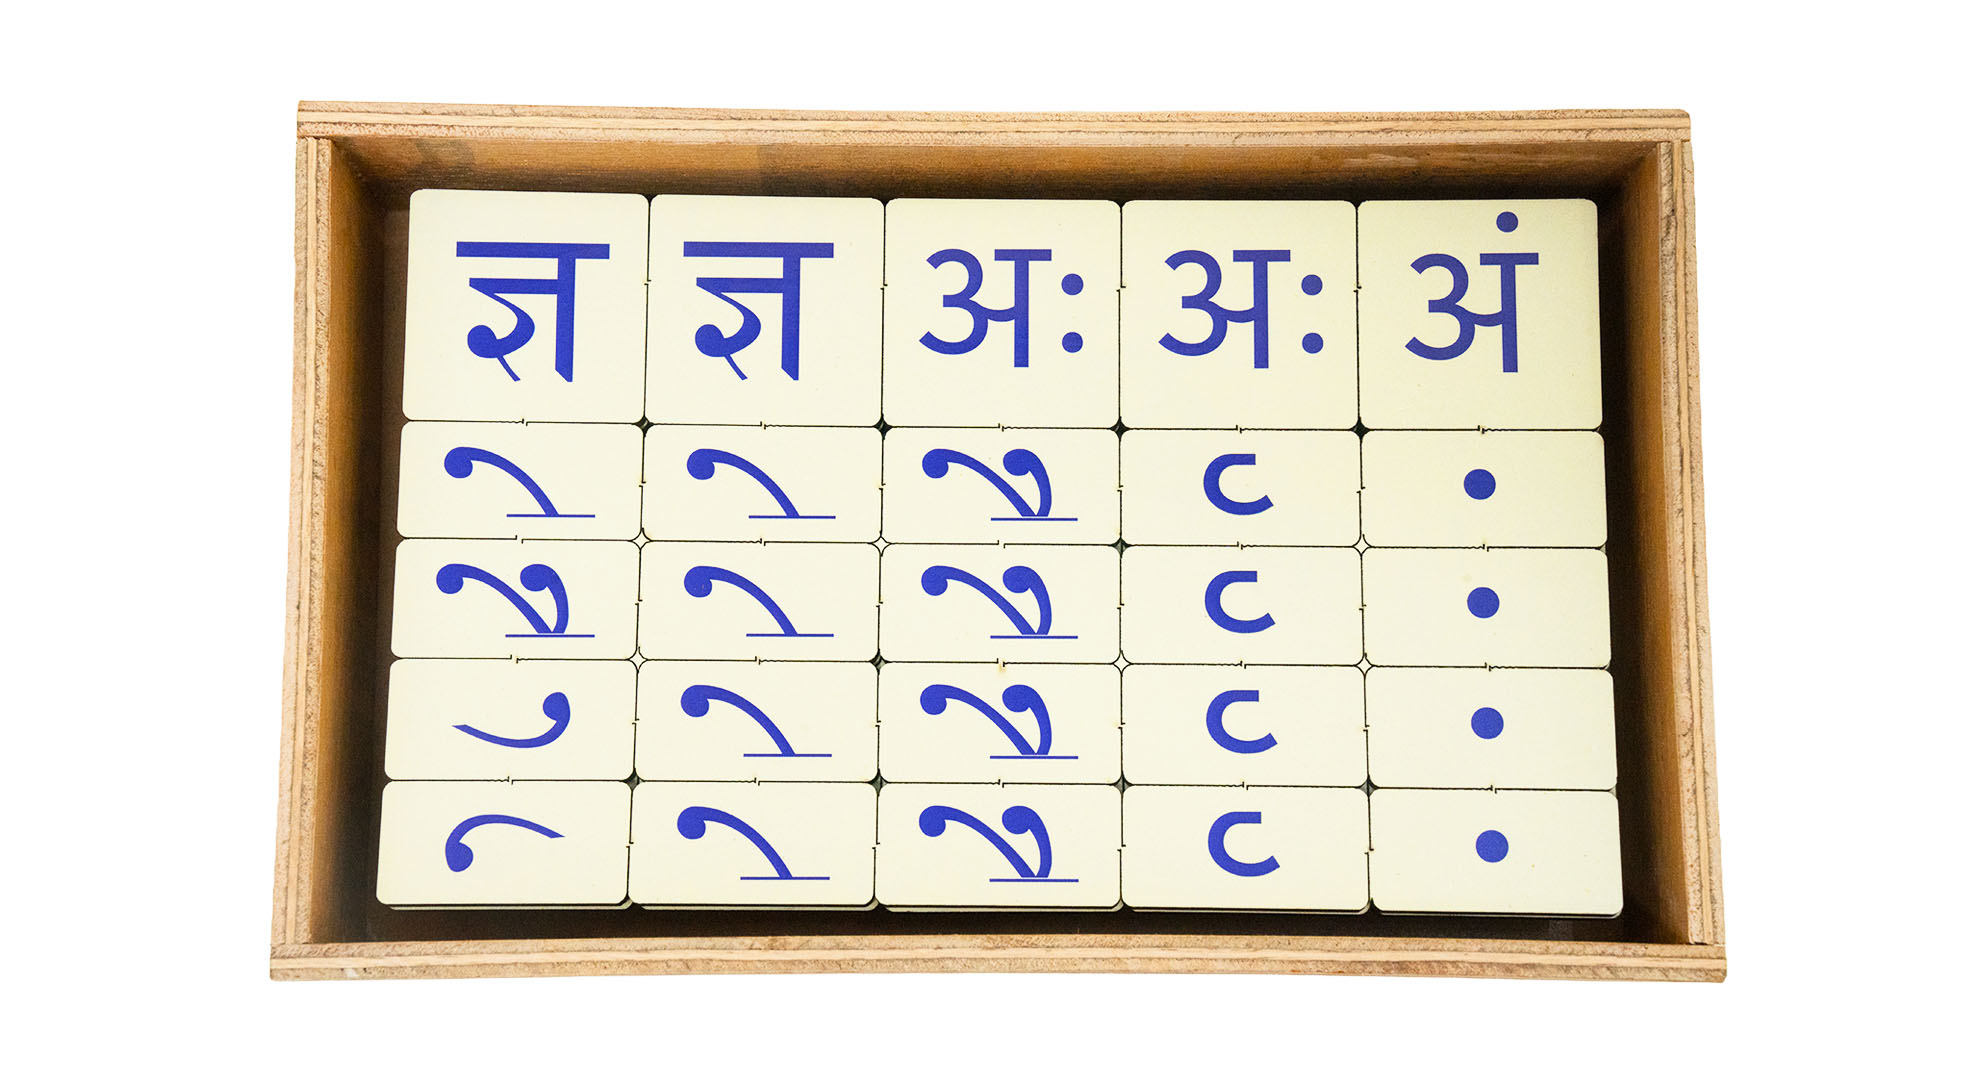 ज्ञ ज्ञ अः अः अं
े े ै ृ ं
ै े ै ृ ं
ु े ै ृ ं
ू े ै ृ ं